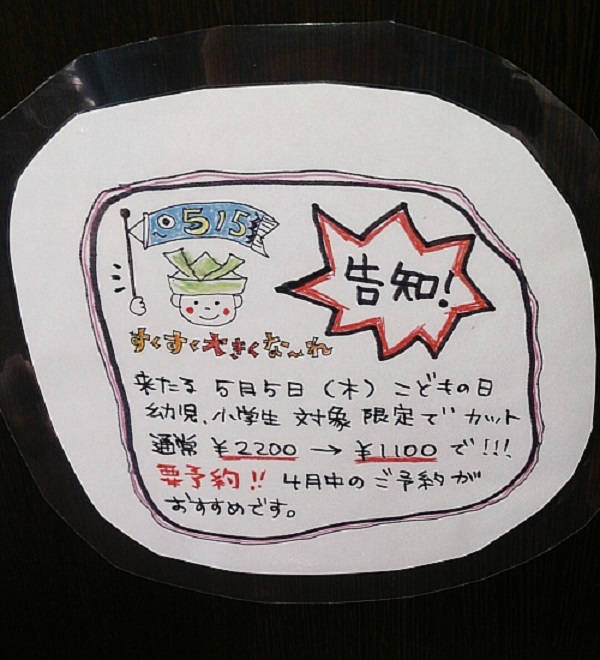 5/5
告知!
すくすく大きくな〜れ
来たる 5月5日(木) こどもの日
幼児、小学生 対象 限定で カット
通常 ¥2200 → ¥1100 で!!!
要予約!! 4月中のご予約が
おすすめです。